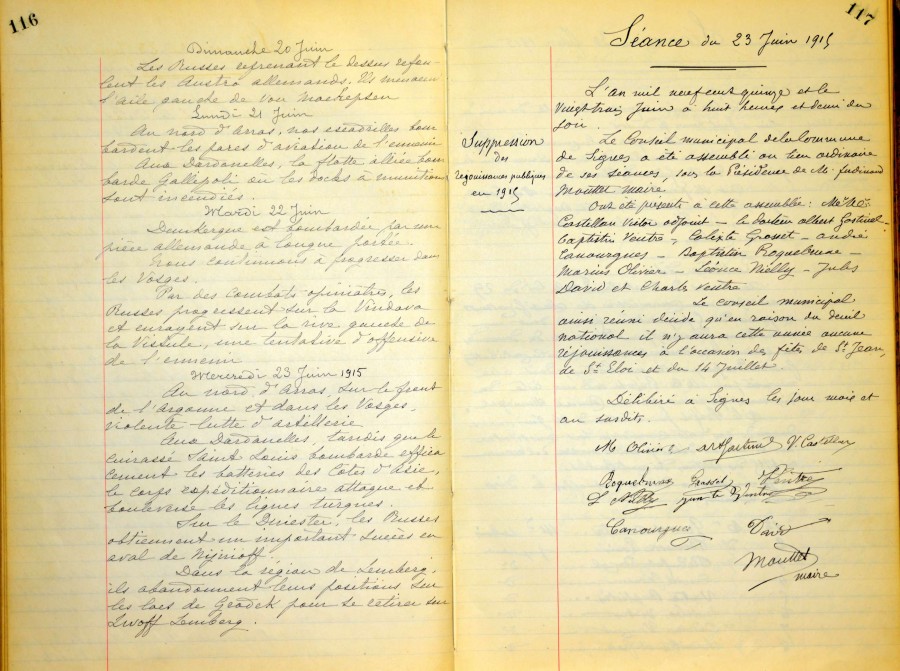 116
Dimanche 20 Juin
Les Russes reprenant le dessus refou-
lent les Austro allemands. Ils menacent
l'aile gauche de Von Mackepsen
Lundi 21 Juin
Au nord d'Arras, nos escadrilles bom
bardent les parcs d'aviation de l'ennemi
Aux Dardanelles, la flotte alliée bom
barde Gallipoli où les docks à munitions
sont incendiés.
Mardi 22 Juin
Dunkerque est bombardée par une
pièce allemande à longue portée.
Nous continuons à progresser dans
les Vosges.
Par des combats opiniâtres, les
Russes progressent sur la Vindava
et enrayent sur la rive gauche de
la Vistule, une tentative d'offensive
de l'ennemi
Mercredi 23 Juin 1915
Au nord d'Arras, sur le front
de l'Argonne et dans les Vosges,
violente lutte d'artillerie
Aux Dardanelles, tandis que le
cuirassé Saint Louis bombarde effica
cement les batteries des Côtes d'Asie,
le corps expéditionnaire attaque et
bouleverse les lignes turques.
Sur le Dniester, les Russes
obtiennent un important succès en
aval de Nijnioff.
Dans la région de Lemberg,
ils abandonnent leurs positions sur
les lacs de Grodek pour se retirer sur
Lwoff Lemberg.
117
Séance du 23 Juin 1915
Suppression
des
rejouissances publiques
en 1915
L'an mil neuf cent quinze et le
Vingt trois Juin à huit heures et demi du
soir.
Le Conseil municipal de la Commune
de Signes a été assemblé au lieu ordinaire
de ses séances, sous la Présidence de M. Ferdinand
Mouttet maire.
Ont été présents à cette assemblée: MM
Castellan Victor adjoint - le docteur albert
Baptistin Ventre, Calixte Grosset - andré
Canourgues - Baptistin Roquebrune -
Marius Olivier - Léonce Nielly - Jules
David et Charles Ventre
Le conseil municipal
ainsi réuni décide qu'en raison du deuil
national il n'y aura cette année aucune
réjouissances à l'occasion des fêtes de St Jean,
de St Eloi et du 14 Juillet.
Délibéré à Signes les jour mois et
an susdits,
M Olivier V. Castellan
Roquebrune Grosset Ventre
L Nielly
Canourgues David
Mouttet
maire